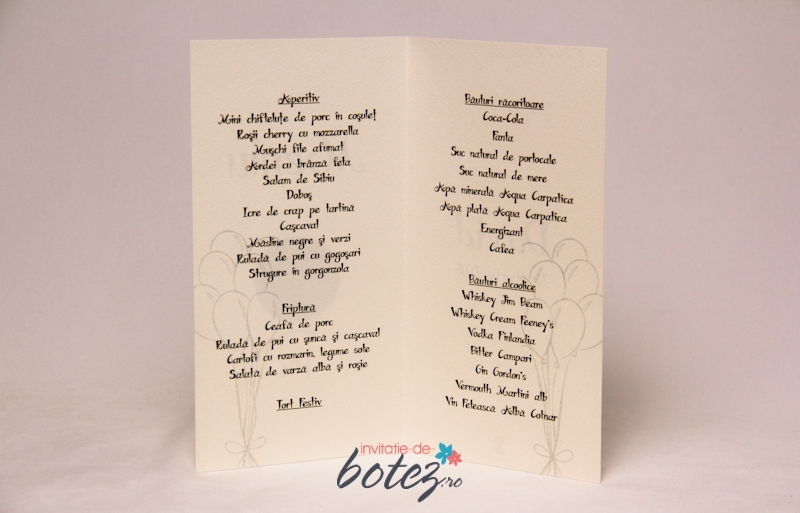 Aperitiv
Mini chifteluțe de porc în coșuleț
Roșii cherry cu mozzarella
Mușchi file afumat
Ardei cu brânză feta
Salam de Sibiu
Doboș
Icre de crap pe tartină
Cașcaval
Măsline negre și verzi
Ruladă de pui cu gogoșari
Strugure în gorgonzola
Friptură
Ceafă de porc
Ruladă de pui cu șuncă și cașcaval
Cartofi cu rozmarin, legume sote
Salată de varză albă și roșie
Tort Festiv
Băuturi răcoritoare
Coca-Cola
Fanta
Suc natural de portocale
Suc natural de mere
Apă minerală Aqua Carpatica
Apă plată Aqua Carpatica
Energizant
Cafea
Băuturi alcoolice
Whiskey Jim Beam
Whiskey Cream Feeney's
Vodka Finlandia
Bitter Campari
Gin Gordon's
Vermouth Martini alb
Vin Fetească Albă Cotnar
invitatie-de-
botez.ro